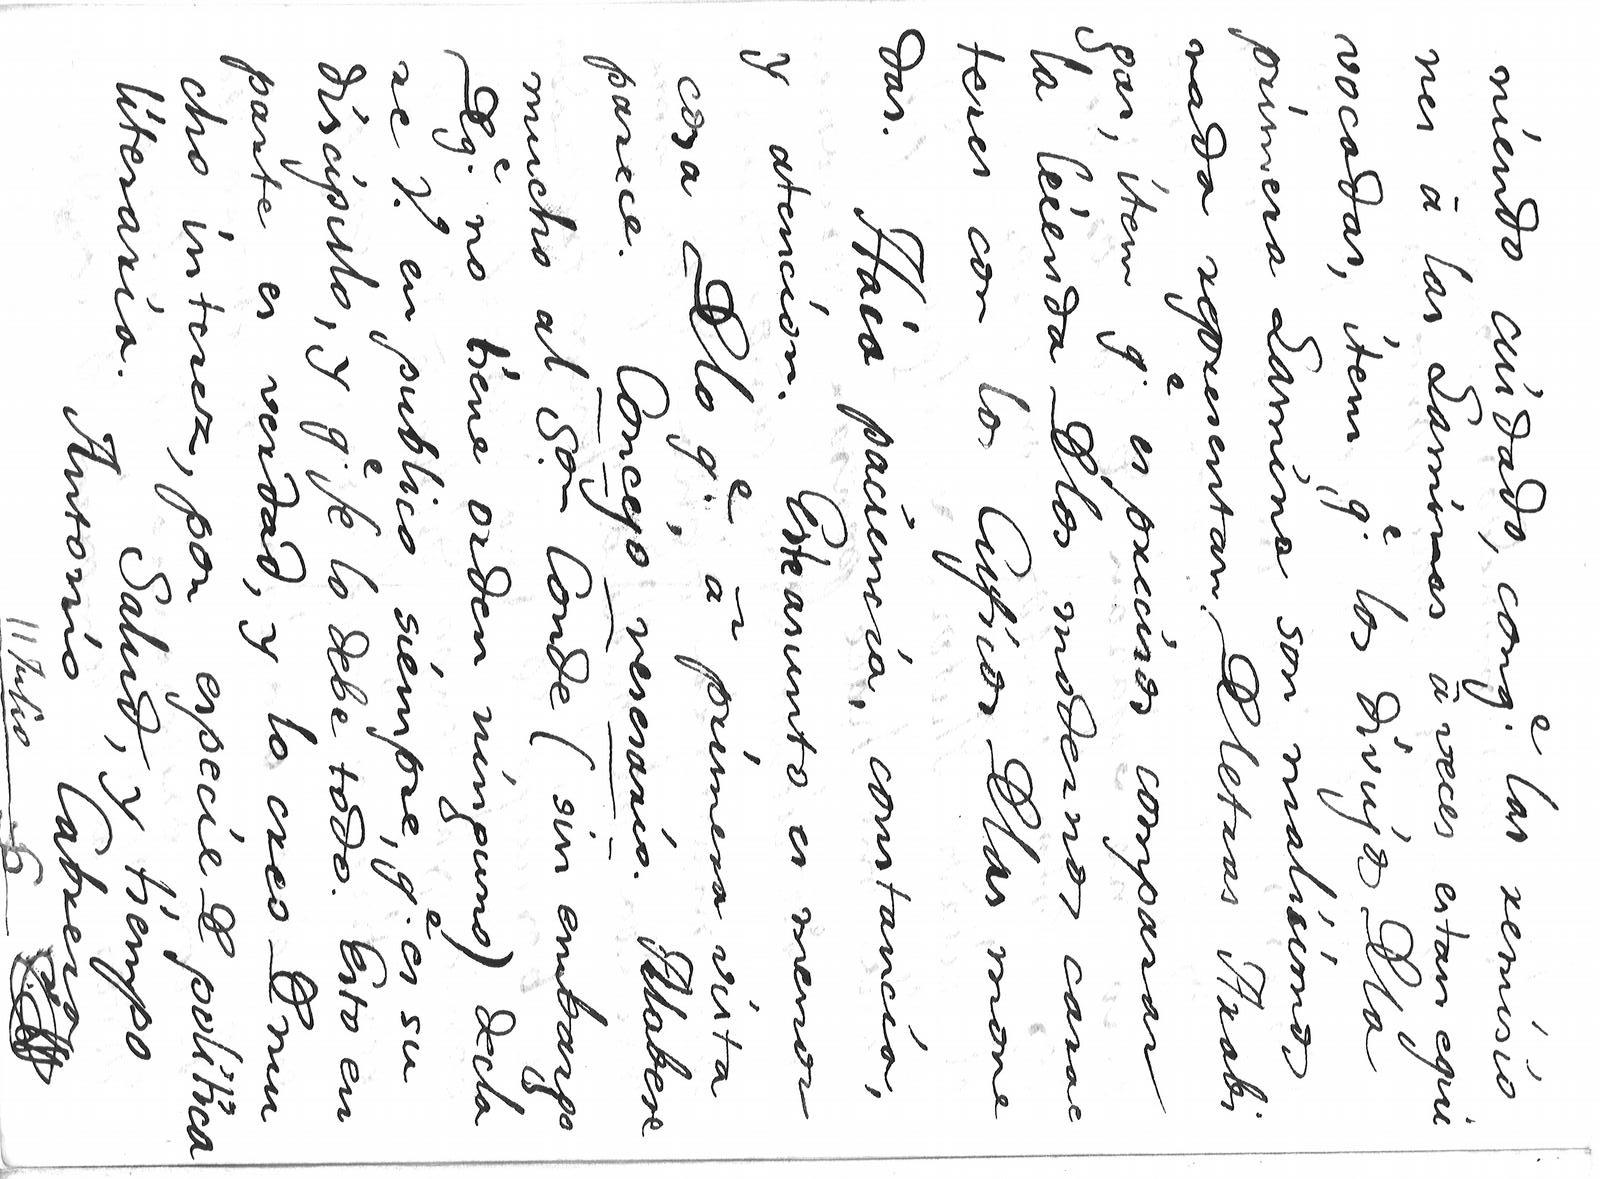 niendo cuidado, conq.e las remisio
nes à las Laminas à veces estan equi
vocadas, item q.e los divujos D la
primera Lamina son malisimos
nada representan, D letras Arabi
gas, item q.e es preciso comparar
la leienda D los modernos carac
teres con lo Cuficos D las mone
das. Haia paciencia, constancia,
y atencion. Este asunto es menor
cosa D lo q.e à primera vista
parece. Concejo nesesario. Alabese
mucho al Sor Conde (sin embargo
D q.e no tiene orden ninguno) decla
rese V. en publico siempre, q.e es su
discipulo, y q.e se lo debe todo. Esto en
parte es verdad, y lo creo D mu
cho interez, por especie D politica
literaria. Salud, y tiempo
Antonio Cabrera
11 Julio